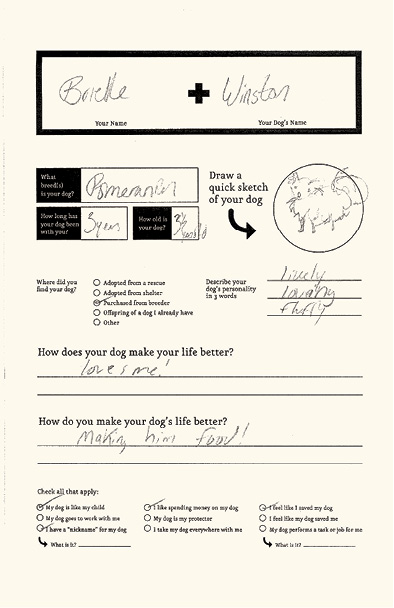 + Winston
Your Name Your Dog's Name
What breed(s) is your dog? Pomeranian
Draw a quick sketch of your dog
How long has your dog been with you? 3 years
How old is your dog?
Where did you find your dog?
Adopted from a rescue
Adopted from shelter
Purchased from breeder
Offspring of a dog I already have
Other
Describe your dog's personality in 3 words
lively
loving
fluffy
How does your dog make your life better?
loves me!
How do you make your dog's life better?
Making him food!
Check all that apply:
My dog is like my child
My dog goes to work with me
I have a "nickname" for my dog
What is it?
I like spending money on my dog
My dog is my protector
I take my dog everywhere with me
I feel like I saved my dog
I feel like my dog saved me
My dog performs a task or job for me
What is it?